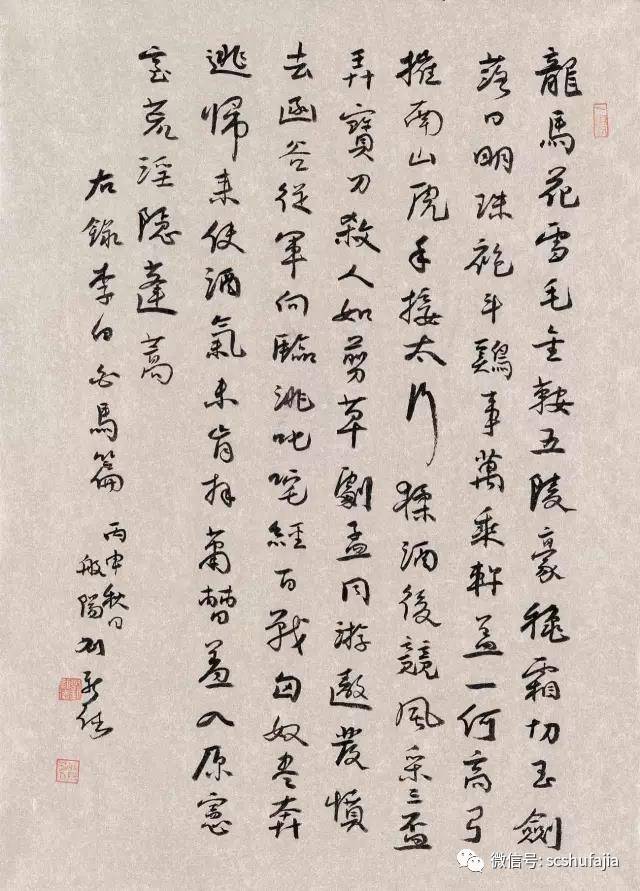 龍馬花雪毛金鞍五陵豪秋霜切玉劍
落日明珠袍斗鷄事萬乘軒蓋一何高弓
摧南山虎手接太行猱酒後競風采三盃
弄寶刀殺人如剪草劇孟同游遨發憤
去函谷從軍向臨洮叱咤經百戰匈奴盡奔
逃歸來使酒氣未肯拜蕭曹羞入原憲
室荒淫隱蓬蒿
右錄李白白馬篇
丙申秋日
般陽
微信号: scshufajia